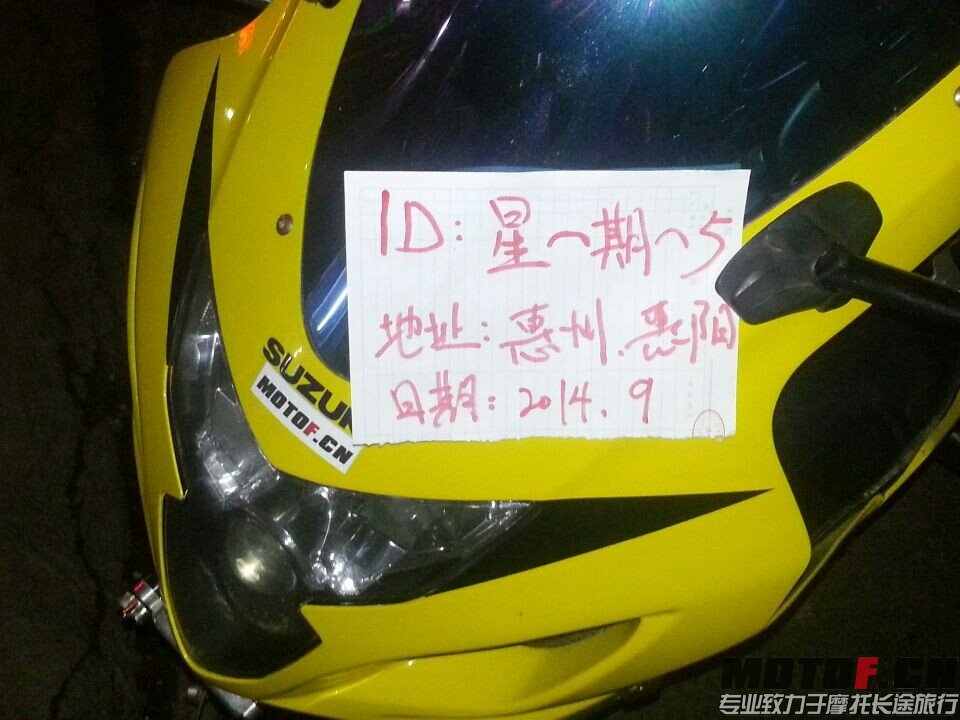 ID: 星~期~5
地址: 惠州.惠阳
日期: 2014.9
SUZUK
MOTOF.CN
MOTOF.CN
专业致力于摩托长途旅行